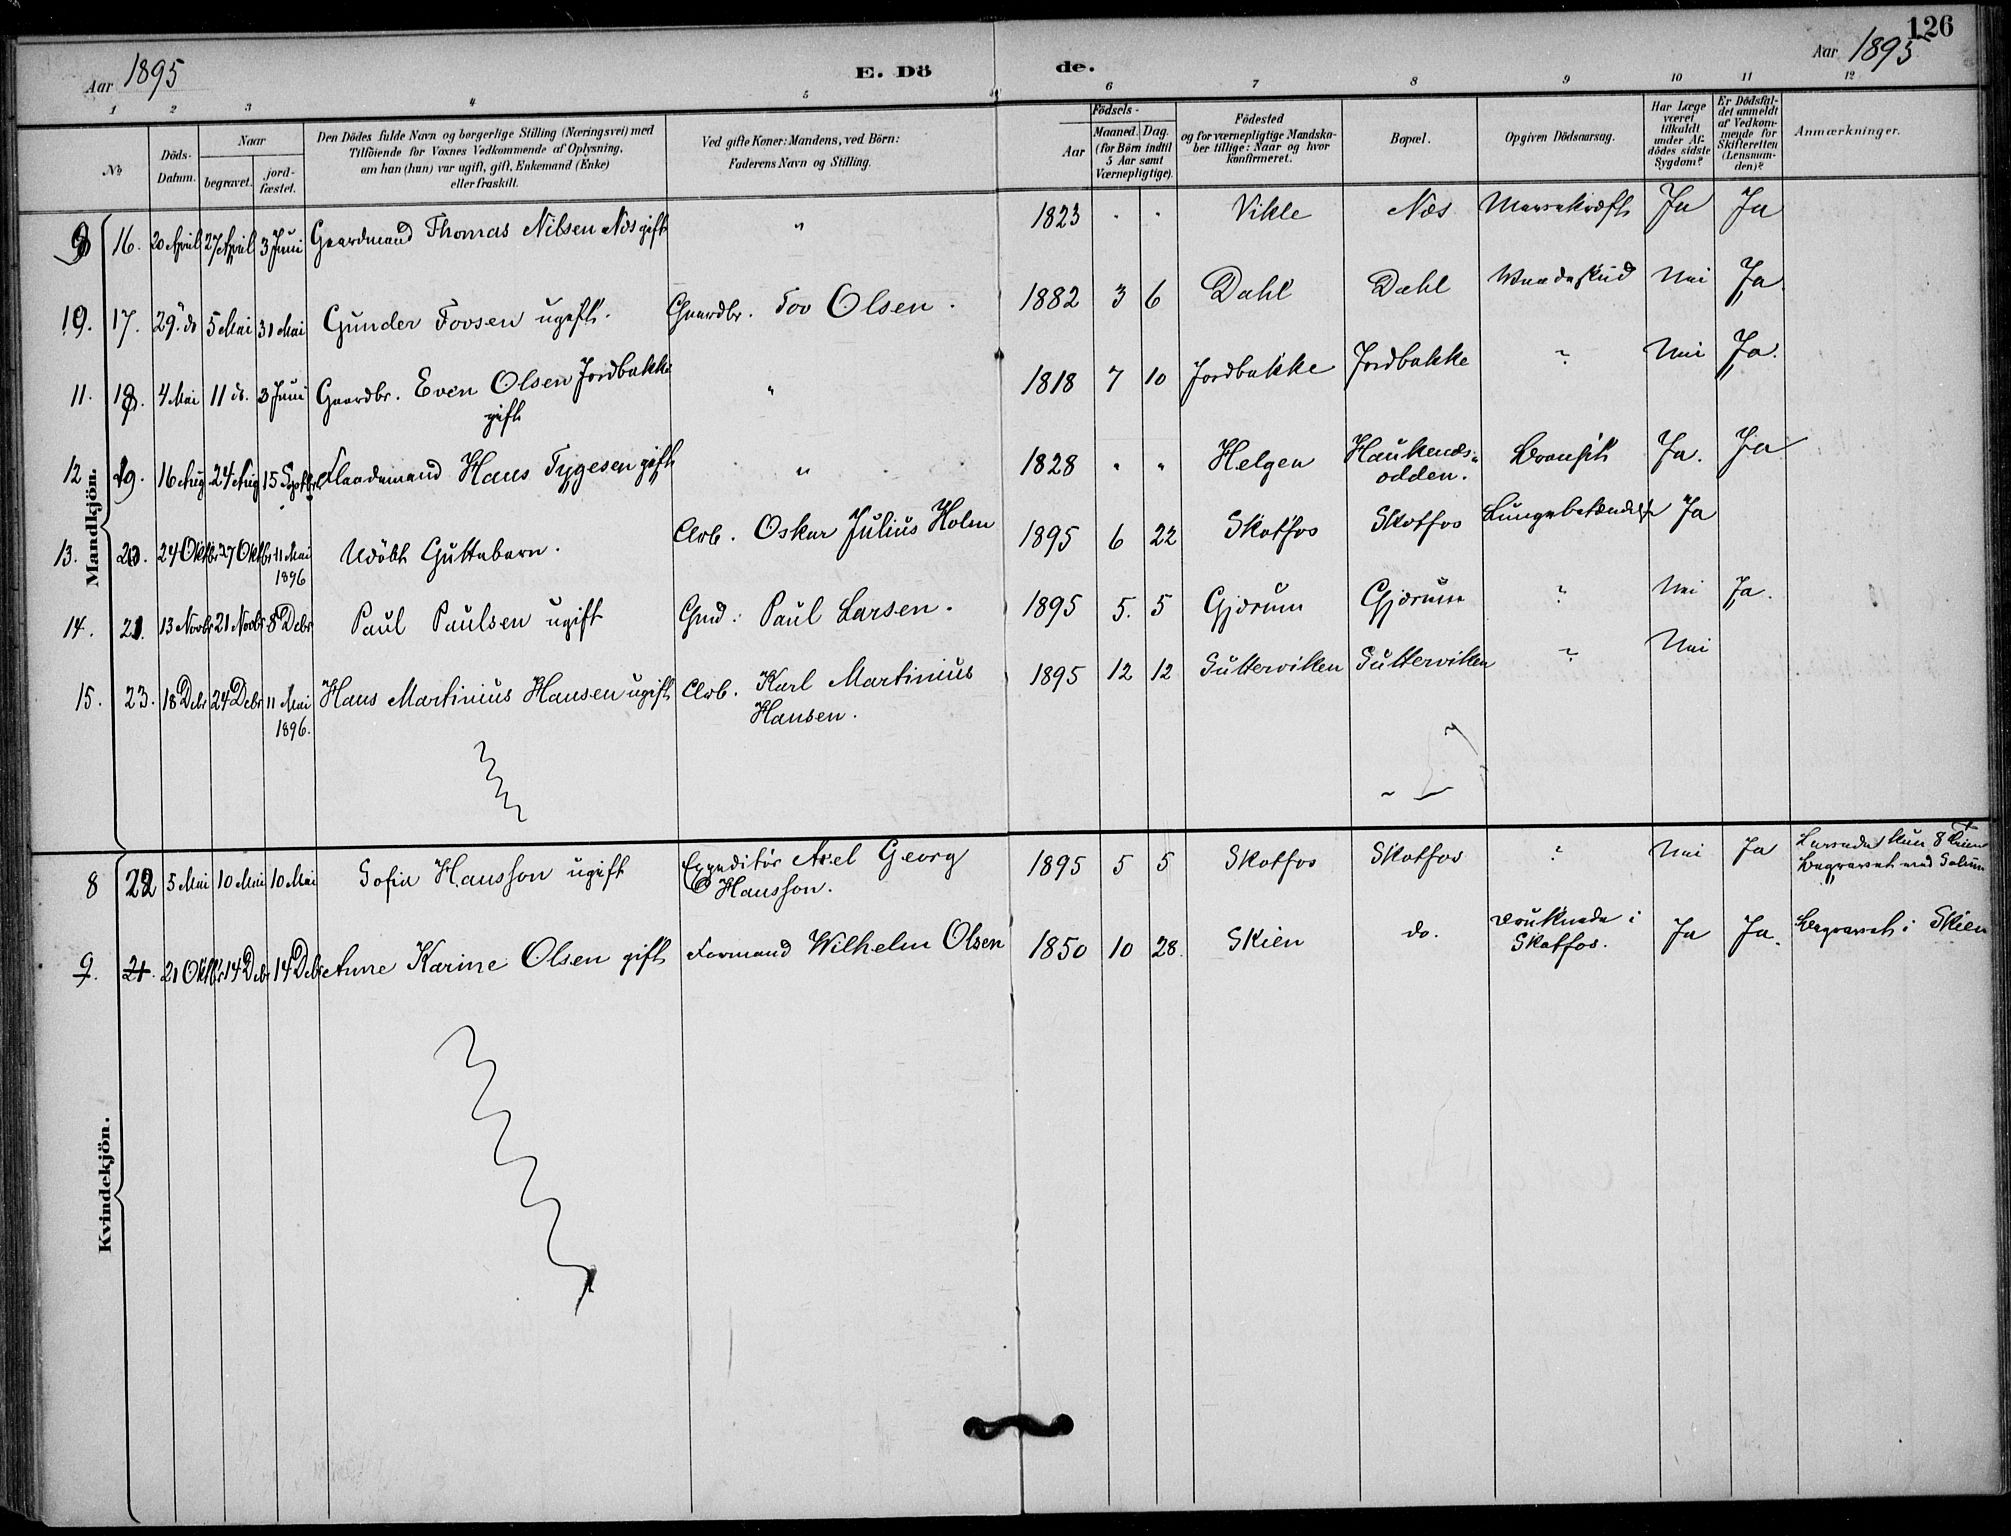 126
Aar 1895
E. Döde.
Aar 1895
1 2 3 4 5 6 7 8 9 10 11 12
No
Döds-
Datum.
Naar
begravet.
jord-
fæstet.
Den Dödes fulde Navn og borgerlige Stilling (Næringsvei) med
Tilföiende for Voxnes Vedkommende af Oplysning,
om han (hun) var ugift, gift, Enkemand (Enke)
eller fraskilt.
Ved gifte Koner: Mandens, ved Börn:
Faderens Navn og Stilling.
Födsels-
Aar
Maaned. Dag.
(for Börn indtil
5 Aar samt
Værnepligtige).
Födested
og for værnepligtige Mandska-
ber tillige: Naar og hvor
konfirmeret.
Bopæl.
Opgiven Dödsaarsag.
Har Læge
været
tilkaldt
under Af-
dödes sidste
Sygdom?
Er Dödsfal-
det anmeldt
af Vedkom-
mende for
Skifteretten
(Lensman-
den)?
Anmærkninger.
Mandkjön.
9 16. 20 April 27 April 3 Juni Gaardmand Thomas Nilsen Næs gift " 1823 " " Vikle Næs Mavekræft Ja Ja
10. 17. 29. do 5 Mai 31 Mai Gunder Tovsen ugift. Gaardbr. Tov Olsen. 1882 3 6 Dahl Dahl Vaadeskud Nei Ja
11. 18. 4 Mai 11 do. 3 Juni Gaardbr. Even Olsen Jordbakke
gift " 1818 7 10 Jordbakke Jordbakke ? Nei Ja.
12 19. 16 Aug 24 Aug 15 Septbr Flaademand Hans Tygesen gift " 1828 " " Helgen Haukenæs-
odden. Bronkit Ja. Ja
13. 20. 24 Oktbr 27 Oktbr 11 Mai
1896 Udöbt Guttebarn. Arb. Oskar Julius Holm 1895 6 22 Skotfos Skotfos Lungebetændelse Ja
14. 21. 13 Novbr 21 Novbr 8 Debr Paul Paulsen ugift Gmd. Paul Larsen. 1895 5. 5 Gjærum Gjærum ? Nei Ja.
15. 23. 18 Debr 24 Debr 11 Mai
1896. Hans Martinius Hansen ugift Arb. Karl Martinius
Hansen. 1895 12 12 Gutterviken Gutterviken ? Nei
Kvindekjön.
8 22 5 Mai 10 Mai 10 Mai Sofie Hansson ugift Expeditör Axel Georg
Hansson. 1895 5 5 Skotfos Skotfos ? Nei Ja Levede kun 8 Timer
Begravet ved Solum
9. 21. 21 Oktbr 14 Debr 14 Debr Anne Karine Olsen gift Formand Wilhelm Olsen 1850 10 28. Skien do. Druknede i
Skotfos. Ja Ja. Begravet i Skien